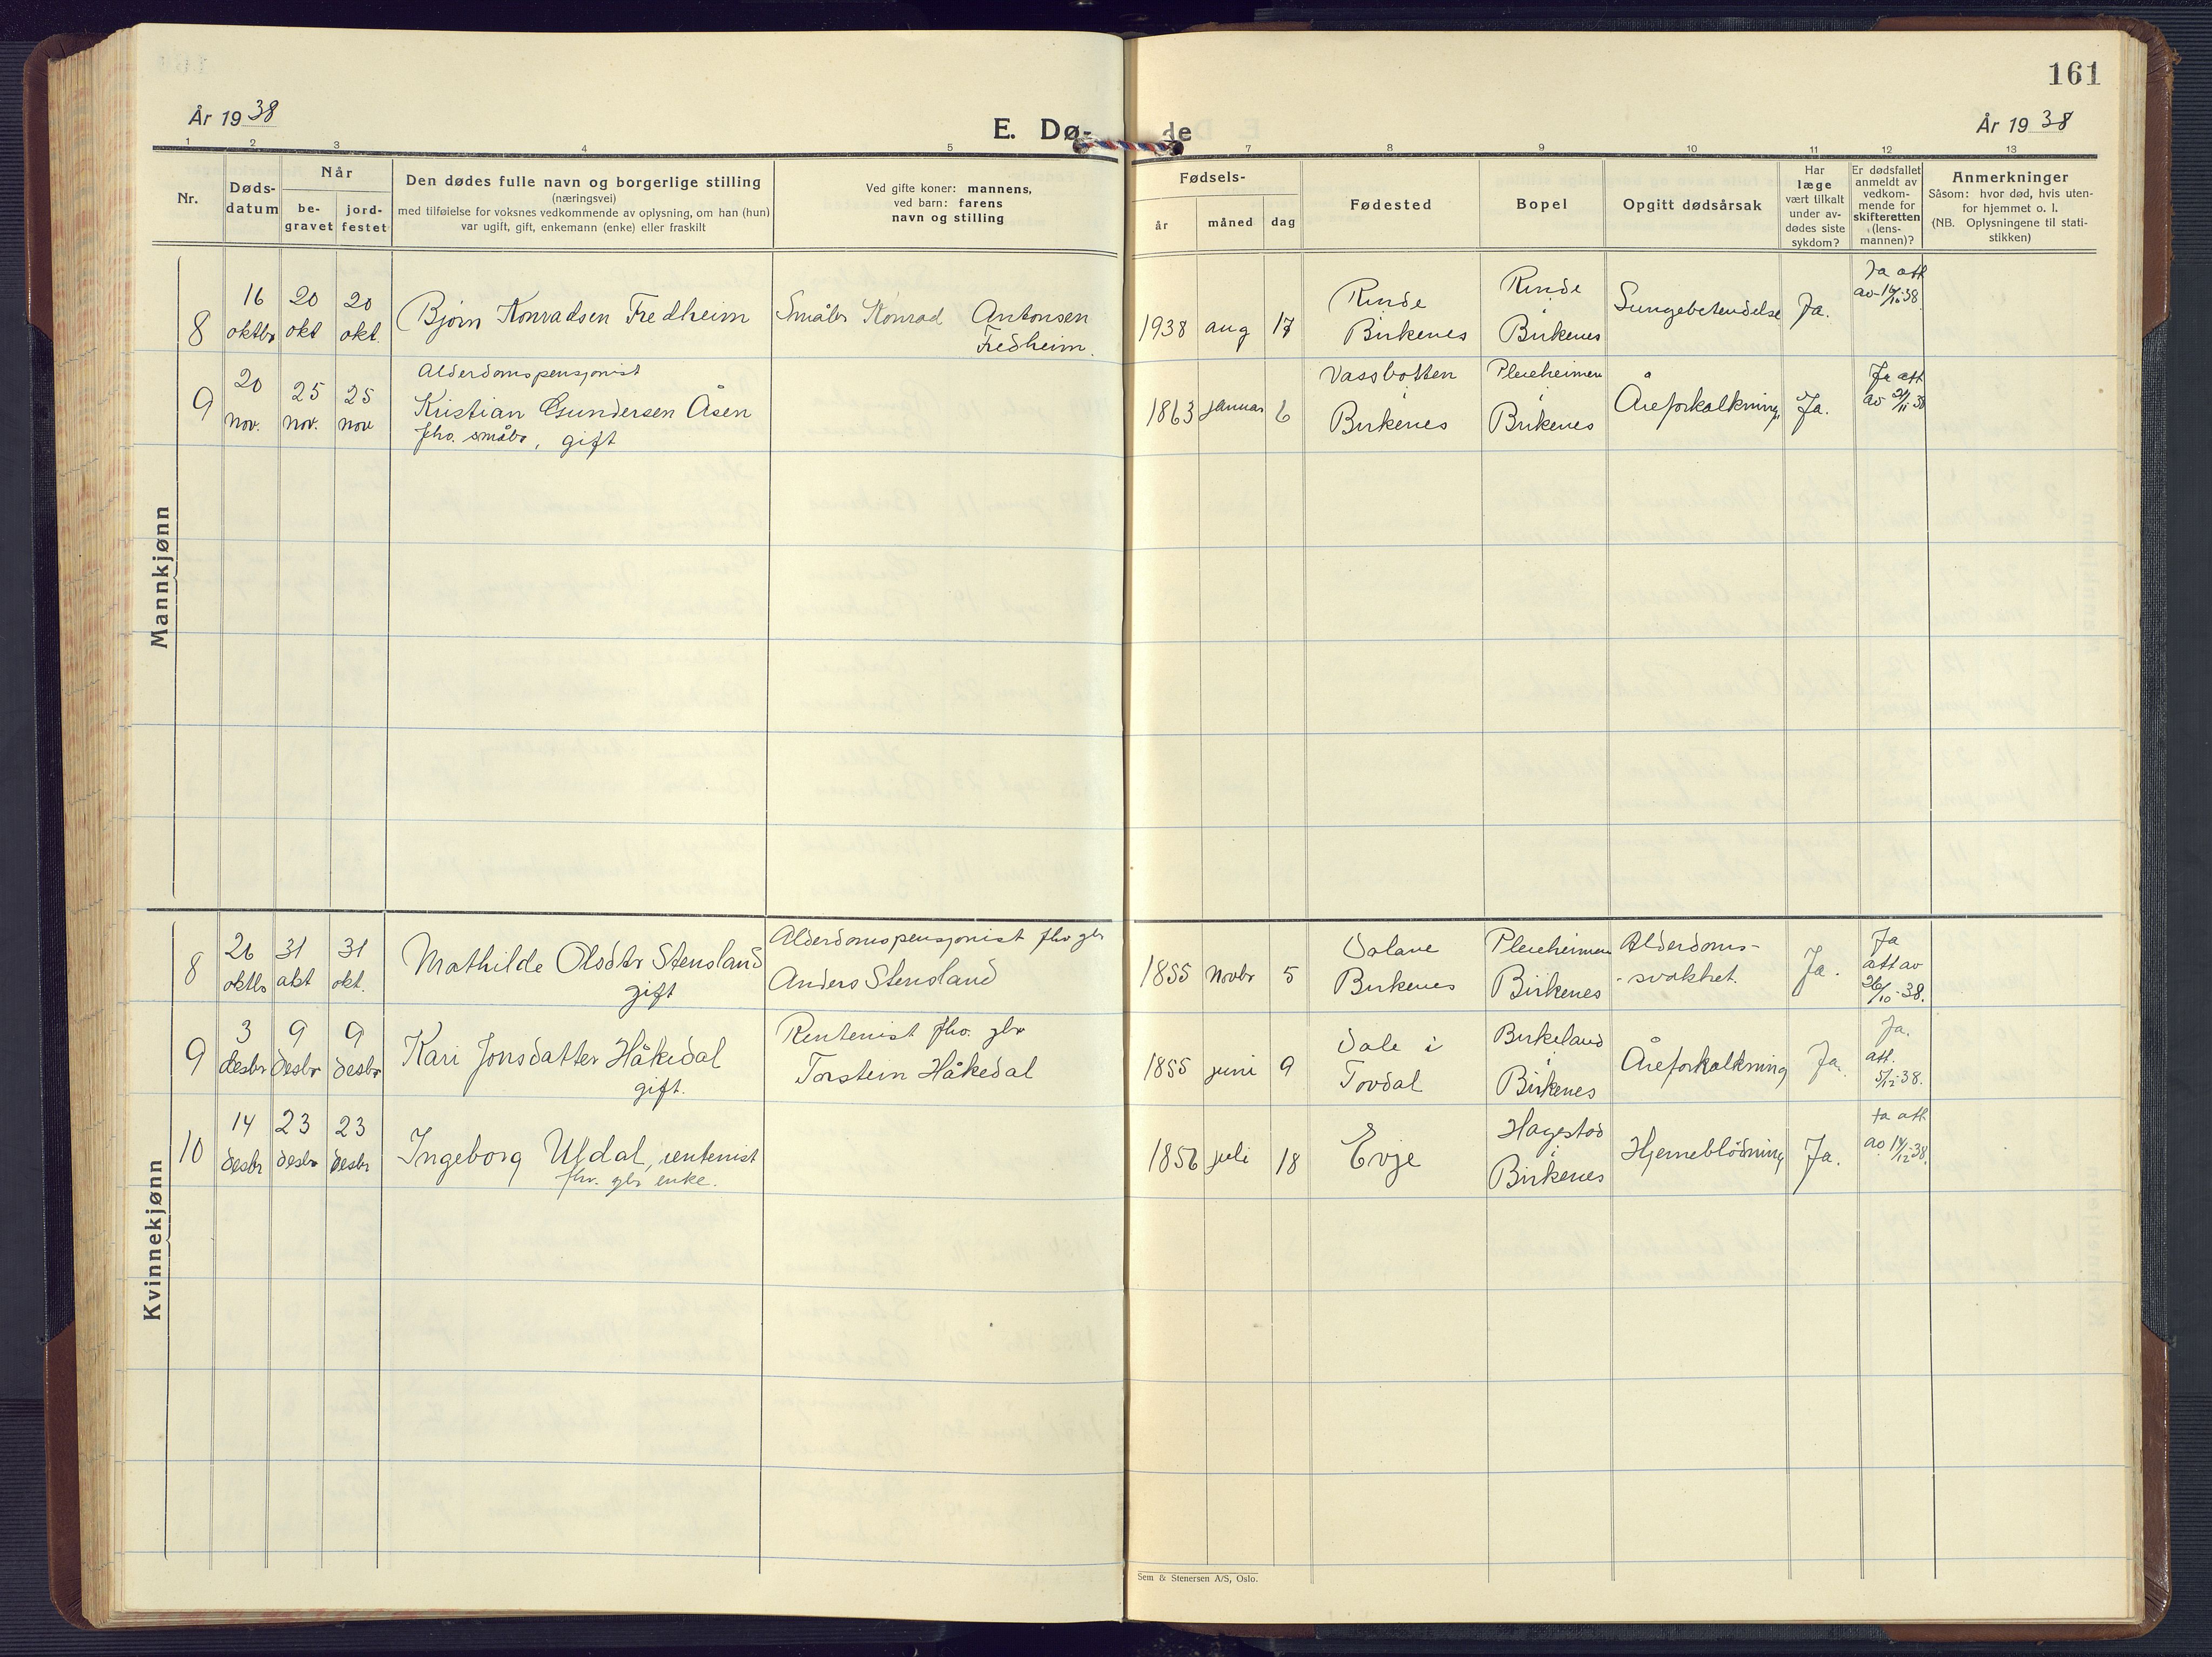 161
År 1938
E. Dø- de
År 1938
1 2 3 4 5 7 8 9 10 11 12 13
Nr.
Døds-
datum
Når
be-
gravet
jord-
festet
Den dødes fulle navn og borgerlige stilling
(næringsvei)
med tilføielse for voksnes vedkommende av oplysning, om han (hun)
var ugift, gift, enkemann (enke) eller fraskilt
Ved gifte koner: mannens,
ved barn: farens
navn og stilling
Fødsels-
år
måned
dag
Fødested
Bopel
Opgitt dødsårsak
Har
læge
vært tilkalt
under av-
dødes siste
sykdom?
Er dødsfallet
anmeldt av
vedkom-
mende for
skifteretten
(lens-
mannen)?
Anmerkninger
Såsom: hvor død, hvis uten-
for hjemmet o. l.
(NB. Oplysningene til stati-
stikken)
Mannkjønn
8
16
oktbr
20
okt
20
okt.
Bjørn Konradsen Fredheim
Småbr Konrad Antonsen
Fredheim.
1938 aug 17
Rinde
Birkenes
Rinde
i
Birkenes
Lungebetendelse
Ja.
Ja att
av 16/10-38
9
20
nov.
25
nov.
25
nov
Alderdomspensjonist
Kristian Gundersen Åsen
fhv. småbr, gift
1863 januar 6
Vassbotten
i
Birkenes
Pleieheimen
i
Birkenes
Åreforkalkning
Ja.
Ja att
av 21/11 38
Kvinnekjønn
8
26
oktbr
31
okt
31
okt.
Mathilde Olsdtr Stensland
gift
Alderdomspensjonist fhv gbr
Anders Stensland
1855 Novbr 5
Dalane
Birkenes
Pleieheimen
Birkenes
Alderdoms-
-svakhet.
Ja.
Ja
att av
26/10-38.
9
3
desbr
9
desbr
9
desbr
Kari Jonsdatter Håkedal
gift.
Rentenist fhv. gbr
Torstein Håkedal
1855 juni 9
Dale i
Tovdal
Birkeland
i
Birkenes
Åreforkalkning
Ja.
Ja.
att.
5/12-38.
10
14
desbr
23
desbr
23
desbr
Ingeborg Uldal, rentenist
fhv. gbr enke.
1856 juli 18
Evje
Hagestad
i
Birkenes
Hjerneblödning
Ja.
Ja att
av 14/12-38.
Sem & Stenersen A/S, Oslo.